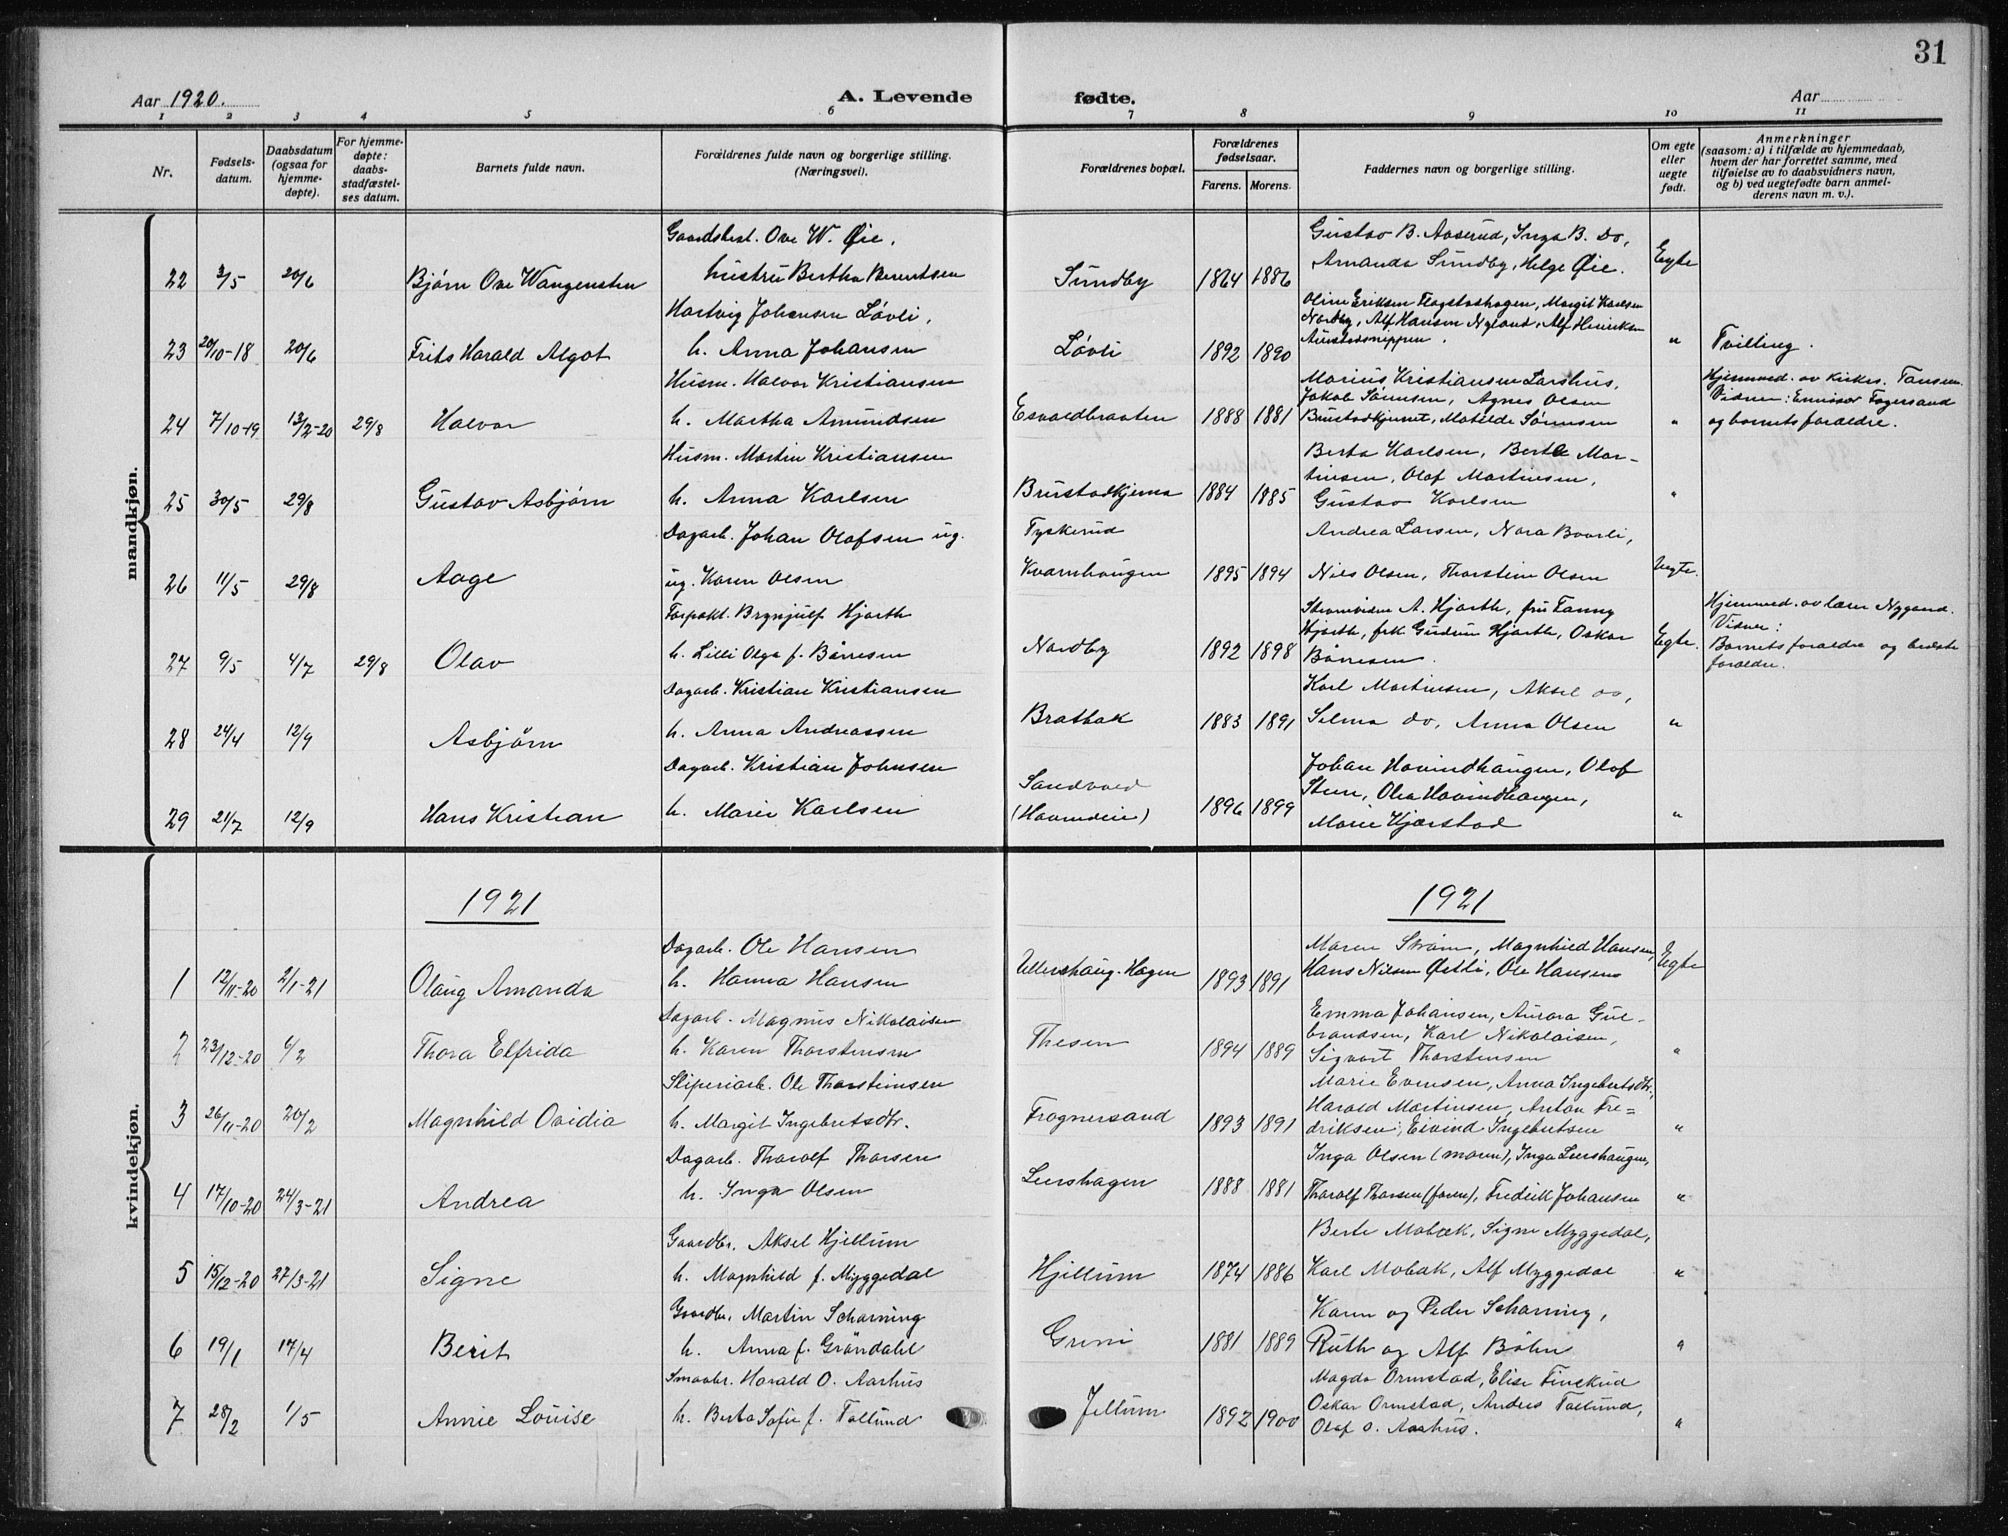 31
Aar 1920.
A. Levende fødte.
Aar
1 2 3 4 5 6 7 8 9 10 11
Nr.
Fødsels-
datum.
Daabsdatum
(ogsaa for
hjemme-
døpte).
For hjemme-
døpte:
daabs-
stadfæstel-
ses datum.
Barnets fulde navn.
Forældrenes fulde navn og borgerlige stilling.
(Næringsvei).
Forældrenes bopæl.
Forældrenes
fødselsaar.
Farens. Morens.
Faddernes navn og borgerlige stilling.
Om egte
eller
uegte
født.
Anmerkninger
(saasom: a) i tilfælde av hjemmedaab,
hvem der har forrettet samme, med
tilføielse av to daabsvidners navn,
og b) ved uegtefødte barn anmel-
derens navn m. v.).
mandkjøn.
22 3/5 20/6 Bjørn Ove Wangensten
Gaardsbest. Ove W. Øie,
hustru Bertha Berentsen
Sundby 1864 1886
Gustav B. Aaserud, Inga B. Do,
Amanda Sundby, Helge Øie.
Egte
23 20/10-18 20/6 Frits Harald Algot
Hartvig Johansen Løvli,
h. Anna Johansen
Løvli 1892 1890
Oline Eriksen Flagstadhagen, Margit Karlsen
Nordby, Alf Hansen Nyland, Alf Henriksen
"
Tvilling.
24 7/10-19 13/2-20 29/8 Halvor
Husm. Halvor Kristiansen
h. Martha Amundsen
Esvaldbraaten 1888 1881
Marius Kristiansen Larshus,
Jakob Sørensen, Agnes Olsen
Brustadkjernet, Matilde Sørensen
"
Hjemmed. av kirkes. Tansem.
Vidner: Emissær Fagersand
og barnets forældre.
25 30/5 29/8 Gustav Asbjørn
Husm. Martin Kristiansen
h. Anna Karlsen
Brustadkjerna 1884 1885
Berta Karlsen, Berthe Mar-
tinsen, Olaf Martinsen,
Gustav Karlsen
"
26 11/5 29/8 Aage
Dagarb. Johan Olafsen ug.
ug. Karen Olsen
Tyskerud
Kvarnhaugen 1895 1894
Andrea Larsen, Nora Baarli,
Nils Olsen, Thorstein Olsen
Uegte.
27 9/5 4/7 29/8 Olav
Forpakt. Brynjulf Hjorth
h. Lilli Olga f. Børresen
Nordby 1892 1898
A. Hjorth, fru Fanny
Hjorth, frk Gudrun Hjorth, Oskar
Børresen.
Egte.
Hjemmed. av lærer Nygaard.
Vidner:
Barnets forældre og bedste
forældre.
28 24/4 12/9 Asbjørn
Dagarb. Kristian Kristiansen
h. Anna Andreassen
Bratbak 1883 1891
Karl Martinsen, Aksel do,
Selma do, Anna Olsen
"
29 21/7 12/9 Hans Kristian
Dagarb. Kristian Johnsen
h. Marie Karlsen
Sandvold
1896 1899
Johan Hovindhaugen, Olaf
Steen, Olea Hovindhaugen,
Marie Kjærstad
"
kvindekjøn.
1921
1921
1 12/11-20 2/1-21 Olaug Amanda
Dagarb. Ole Hansen
h. Hanna Hansen
Ullershaug-Hagen 1893 1891
Maren Strøm, Magnhild Hansen,
Hans Nilsen Østli, Ole Hansen
Egte
2 23/12-20 6/2 Thora Elfrida
Dagarb. Magnus Nikolaisen
h. Karen Thorstensen
Thesen 1894 1889
Emma Johansen, Aurora Gul-
brandsen, Karl Nikolaisen,
Sigvart Thorstensen
"
3 26/11-20 20/2 Magnhild Ovidia
Sliperiarb. Ole Thorsteinsen
h. Margit Ingebretsdtr.
Frognersand 1893 1891
Marie Evensen, Anna Ingebertsdtr,
Harald Martinsen, Anton Fre=
driksen, Eivind Ingebretsen
"
4 17/10-20 24/3-21 Andrea
Dagarb. Tharalf Thorsen
h. Inga Olsen
Leershagen 1888 1881
Inga Olsen (moren), Inga Leershaugen,
Tharalf Thorsen (faren), Fredrik Johansen
"
5 15/12-20 27/3-21 Signe
Gaardbr. Aksel Hjellum
h. Magnhild f. Myggedal
Hjellum 1874 1886
Berte Mobæk, Signe Myggedal,
Karl Mobæk, Alf Myggedal
"
6 19/1 17/4 Berit
Gaardbr. Martin Scharning
h. Anna f. Grøndahl
Greni 1881 1889
Karen og Peder Scharning,
Ruth og Alf Bøhn
"
7 28/2 1/5 Annie Louise
Smaabr. Harald O. Aarhus
h. Berta Sofie f. Tallund
Jellum 1892 1900
Magda Ormstad, Elise Finckud
Oskar Ormstad, Anders Tallund,
Olaf O. Aarhus.
"